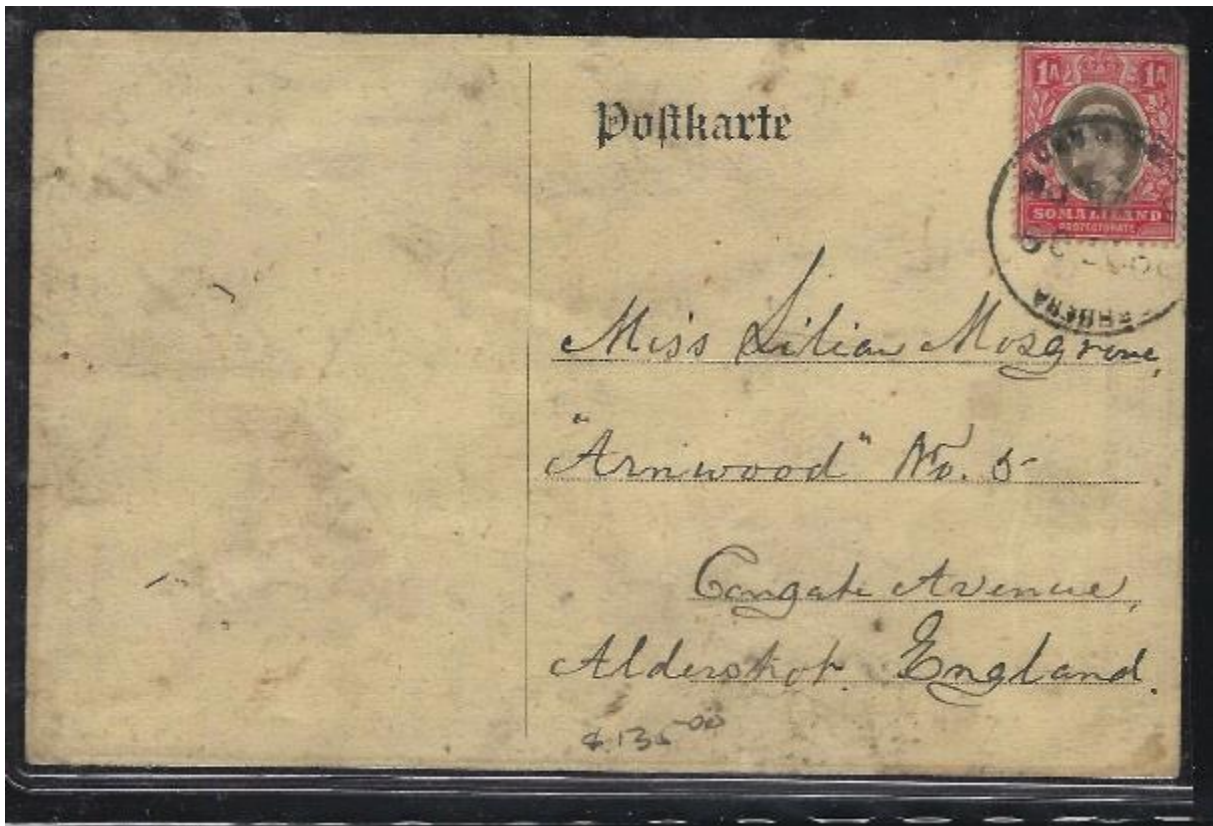 1A 1A
Postkarte
SOMALILAND
PROTECTORATE
BERBERA
Miss Lilian Mosgrove,
"Arnwood" No. 5
Avenue,
Aldershot. England.
$ 135 00